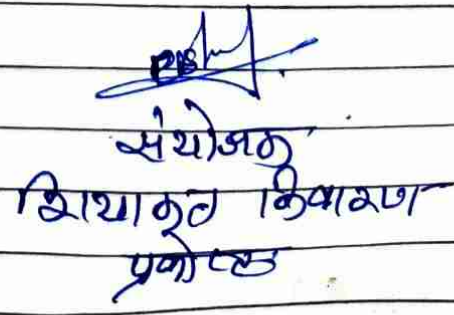 संयोजक
शियाकृत निवारण
प्रकोष्ठ